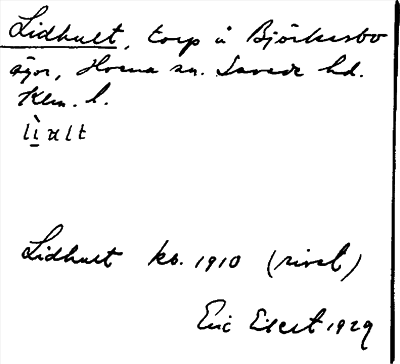 Lidhult, torp å Björkesbo
ägor, Horna sn. Sevede hd.
Klm. l.
lìult
Lidhult kb. 1910 (rivet)
Eric Elert 1929